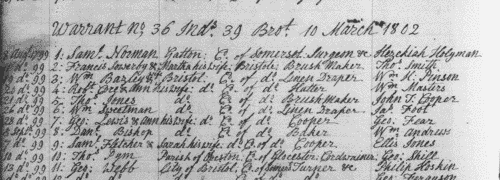 Warrant No 36 Indt 39 Brot 10 March 1802
Augt 99 1: Saml Norman Yatton Co of Somerset Surgeon & Hezekiah Holyman
do 99 2: Francis & Martha his wife Bristol Brush Maker Thos Smith
do 99 3: Wm Bazley & Bristol Co of do Linen Draper Wm K: Pinson
do 99 4: Robt & Ann his wife do Co of do Hatter Wm Masters
do 99 5: Thos Jones do Co of do Brush Maker John T: Cooper
do 99 6: Wm Sweetman do Co of do Linen Draper Jas Foot
do 99 7: Geo: Lewis & Ann his wife do Co of do Cooper Geo: Fear
Sept 99 8: Danl Bishop do Co of do Baker Wm Andrews
7 do 99 9: Saml Fletcher & Sarah his wife do Co of do Cooper Ellis Jones
10 do 99 10: Thos Pym Parish of Co of Glocester Cordwainer Geo: Shill
13 do 99 11: Geo: Webb City of Bristol, Co of Turner & Philip Hoskin
do 99 Geo: Ferguson